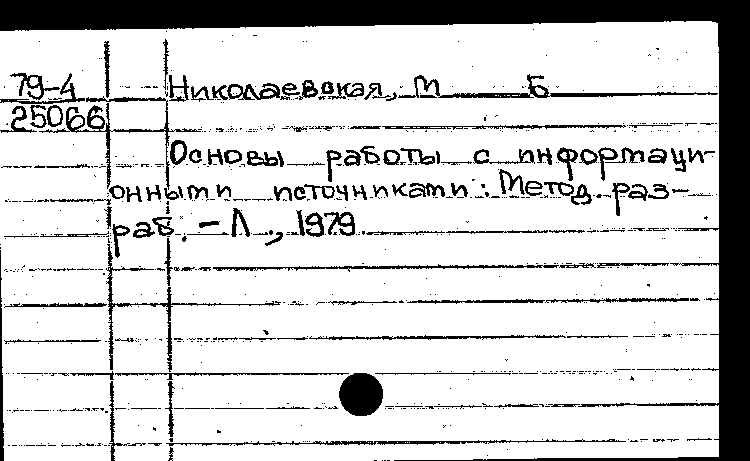 79-4
Николаевская, М Б
25066
Основы работы с информаци-
онными источниками: Метод. раз-
раб. - Л., 1979